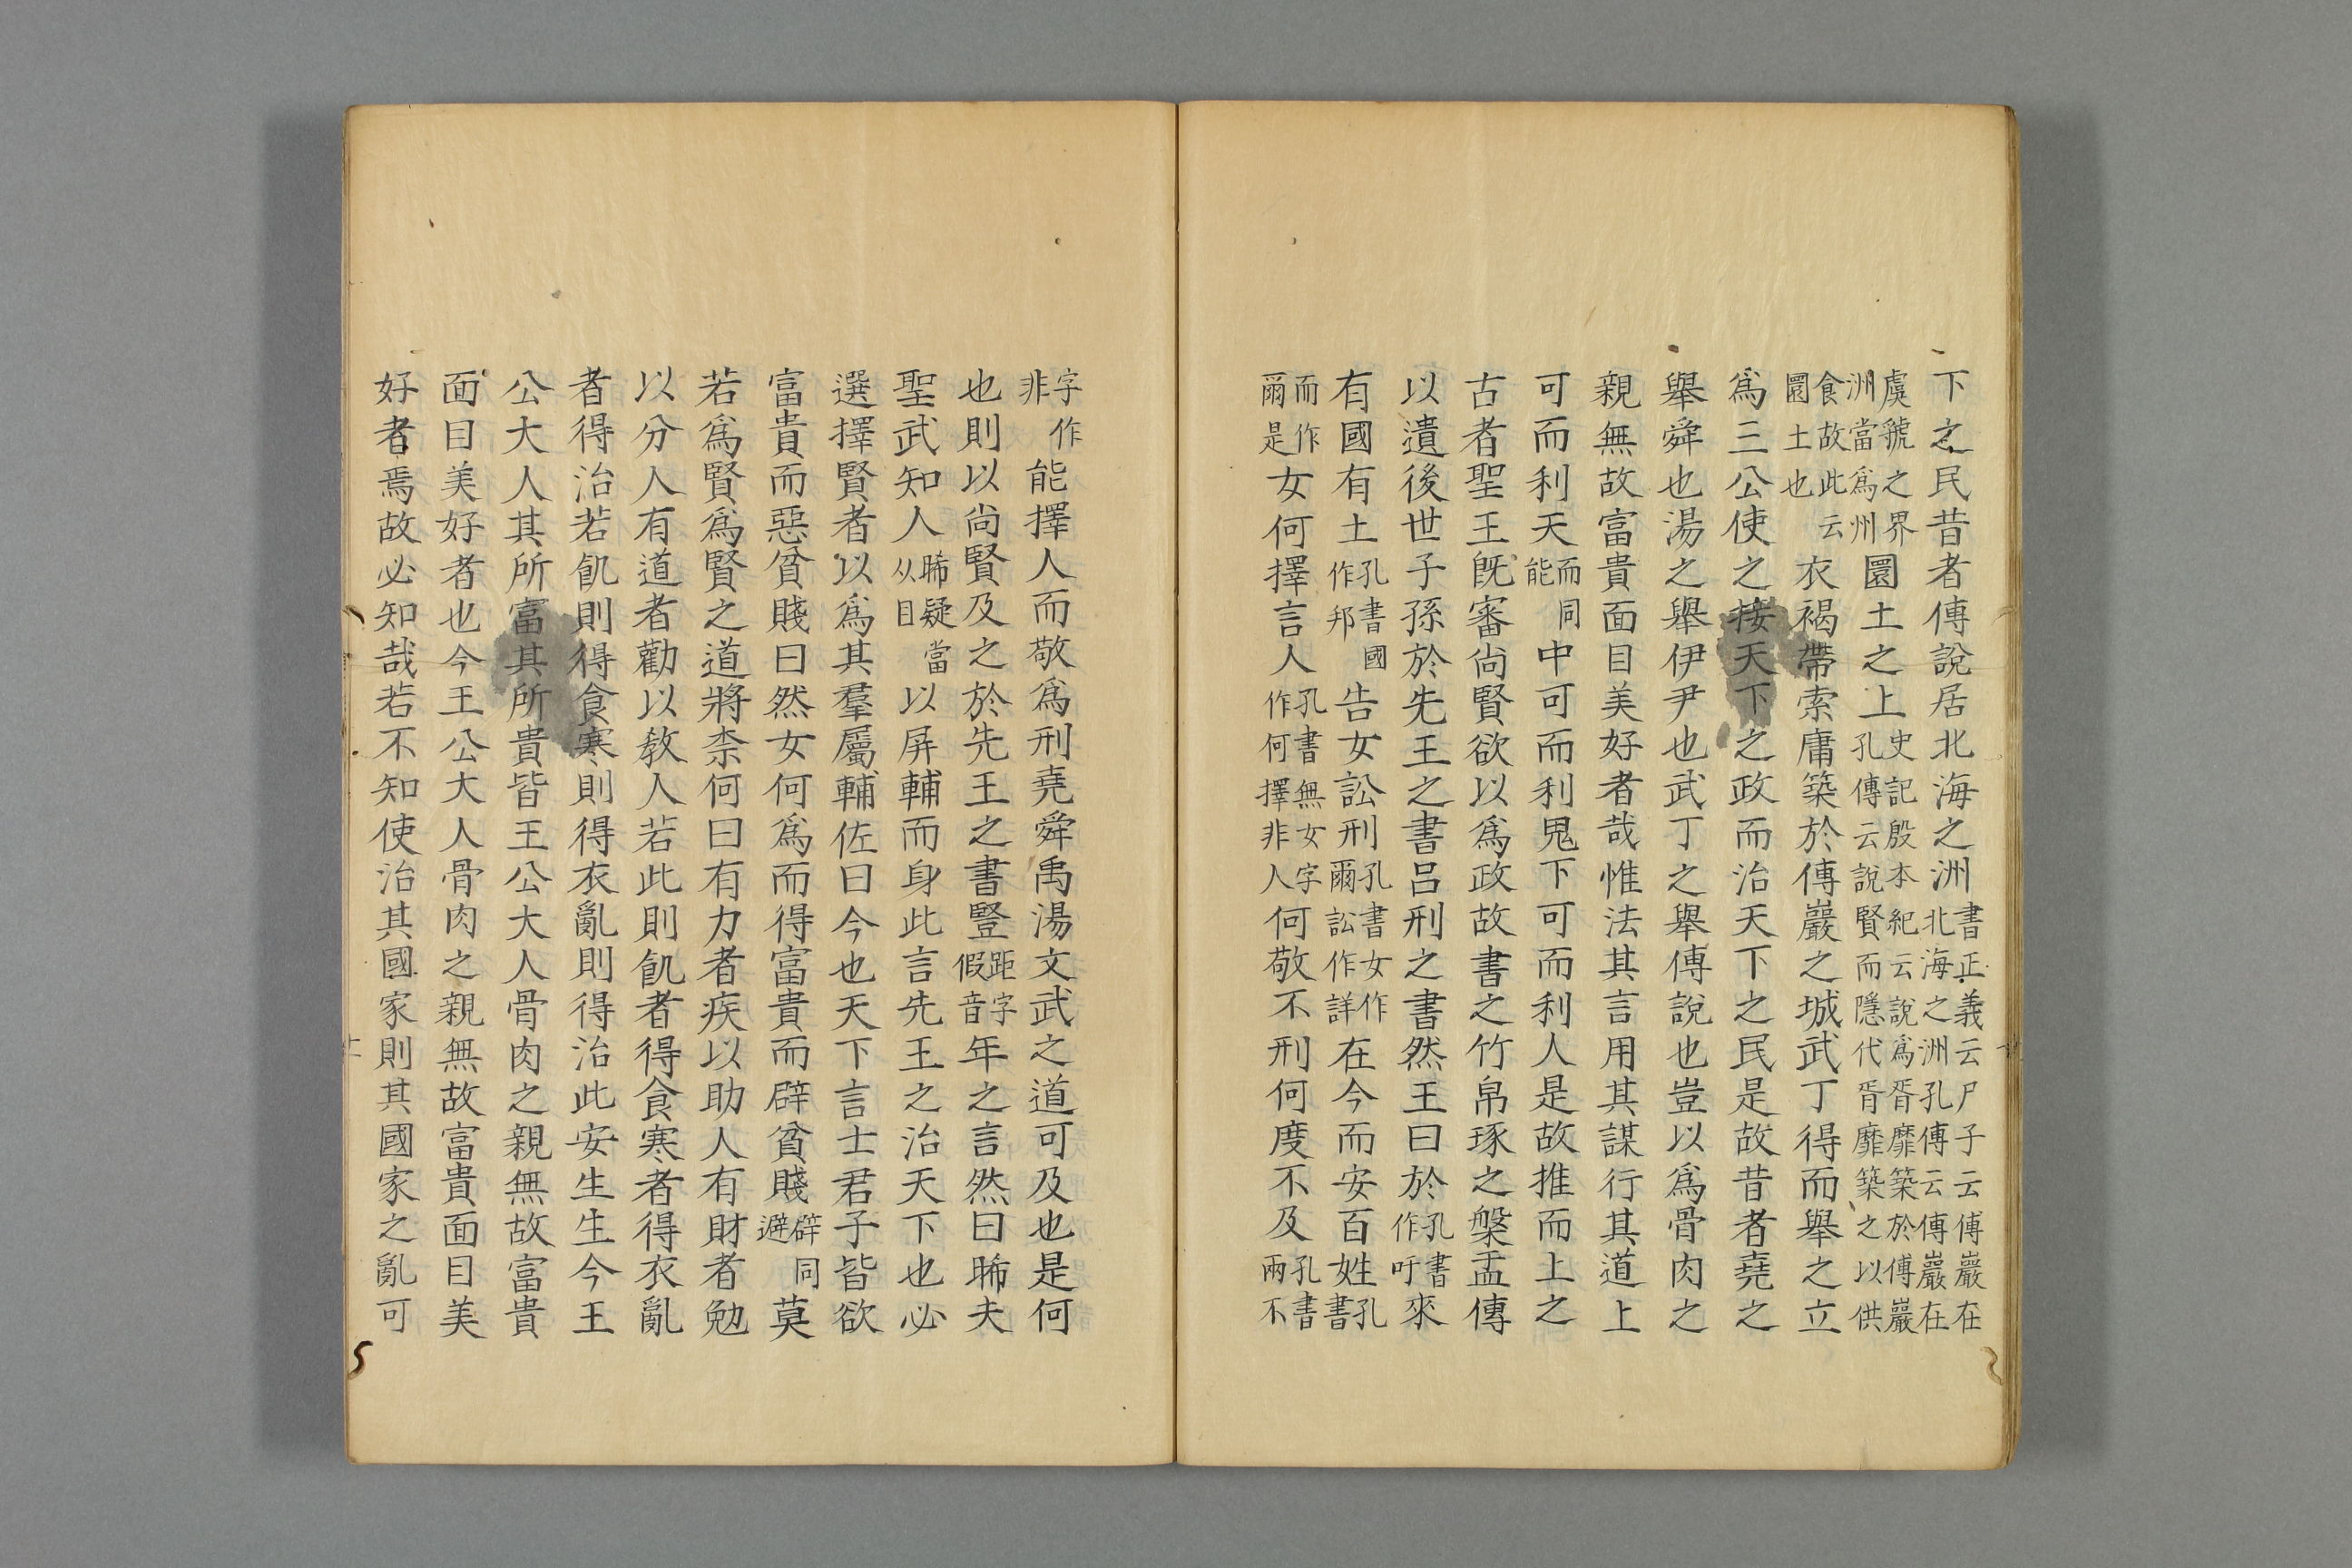 下之民昔者傅說居北海之洲書正義云尸子云傅巖在北海之洲孔傳云傅巖在
虞虢之界洲當爲州圜土之上史記殷本紀云說爲胥靡築於傅巖孔傳云說賢而隱代胥靡築之以供
食故此云圜土也衣褐帶索庸築於傅巖之城武丁得而舉之立
爲三公使之接天下之政而治天下之民是故昔者堯之
舉舜也湯之舉伊尹也武丁之舉傅說也豈以爲骨肉之
親無故富貴面目美好者哉惟法其言用其謀行其道上
可而利天而同能中可而利鬼下可而利人是故推而上之
古者聖王旣審尚賢欲以爲政故書之竹帛琢之槃盂傳
以遺後世子孫於先王之書呂刑之書然王曰於孔書作吁來
有國有土孔書國作邦告女訟刑孔書女作爾訟作詳在今而安百姓孔書
而作爾是女何擇言人孔書無女字作何擇非人何敬不刑何度不及孔書兩不
字作非能擇人而敬爲刑堯舜禹湯文武之道可及也是何
也則以尚賢及之於先王之書豎距字假音年之言然曰晞夫
聖武知人晞疑當从目以屏輔而身此言先王之治天下也必
選擇賢者以爲其羣屬輔佐曰今也天下言士君子皆欲
富貴而惡貧賤曰然女何爲而得富貴而辟貧賤辟同避莫
若爲賢爲賢之道將柰何曰有力者疾以助人有財者勉
以分人有道者勸以教人若此則飢者得食寒者得衣亂
者得治若飢則得食寒則得衣亂則得治此安生生今王
公大人其所富其所貴皆王公大人骨肉之親無故富貴
面目美好者也今王公大人骨肉之親無故富貴面目美
好者焉故必知哉若不知使治其國家則其國家之亂可